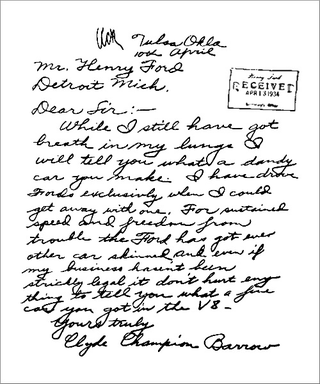 Tulsa Okla
10th April
Mr. Henry Ford
Detroit Mich.
RECEIVED
APR 13 1934
Dear Sir:—
While I still have got
breath in my lungs I
will tell you what a dandy
car you make. I have drove
Fords exclusively when I could
get away with one. For sustained
speed and freedom from
trouble the Ford has got ever
other car skinned, and even if
my business hasen't been
strickly legal it don't hurt eny
thing to tell you what a fine
car you got in the V8 -
Yours truly
Clyde Champion Barrow